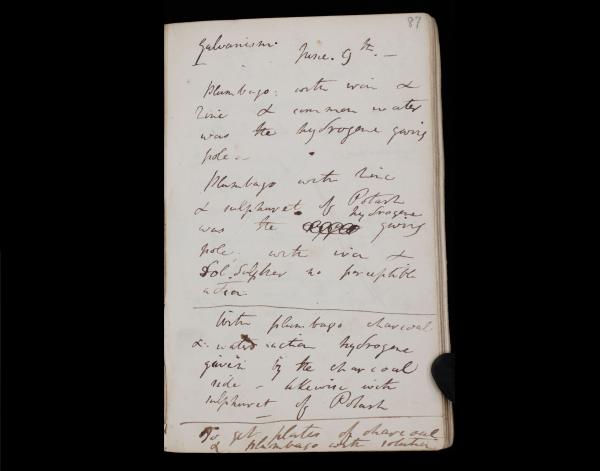 87
Galvanism. June. 9th. —
Plumbago: with iron &
zinc & common water
was the hydrogene giving
pole —
Plumbago with zinc
& sulphuret of Potash
was the hydrogene giving
pole. with iron &
Sol. Sulphur no perceptible
action
With plumbago charcoal
& water action hydrogene
given by the charcoal
side – likewise with
sulphuret of Potash
To get plates of charcoal
& plumbago with solution